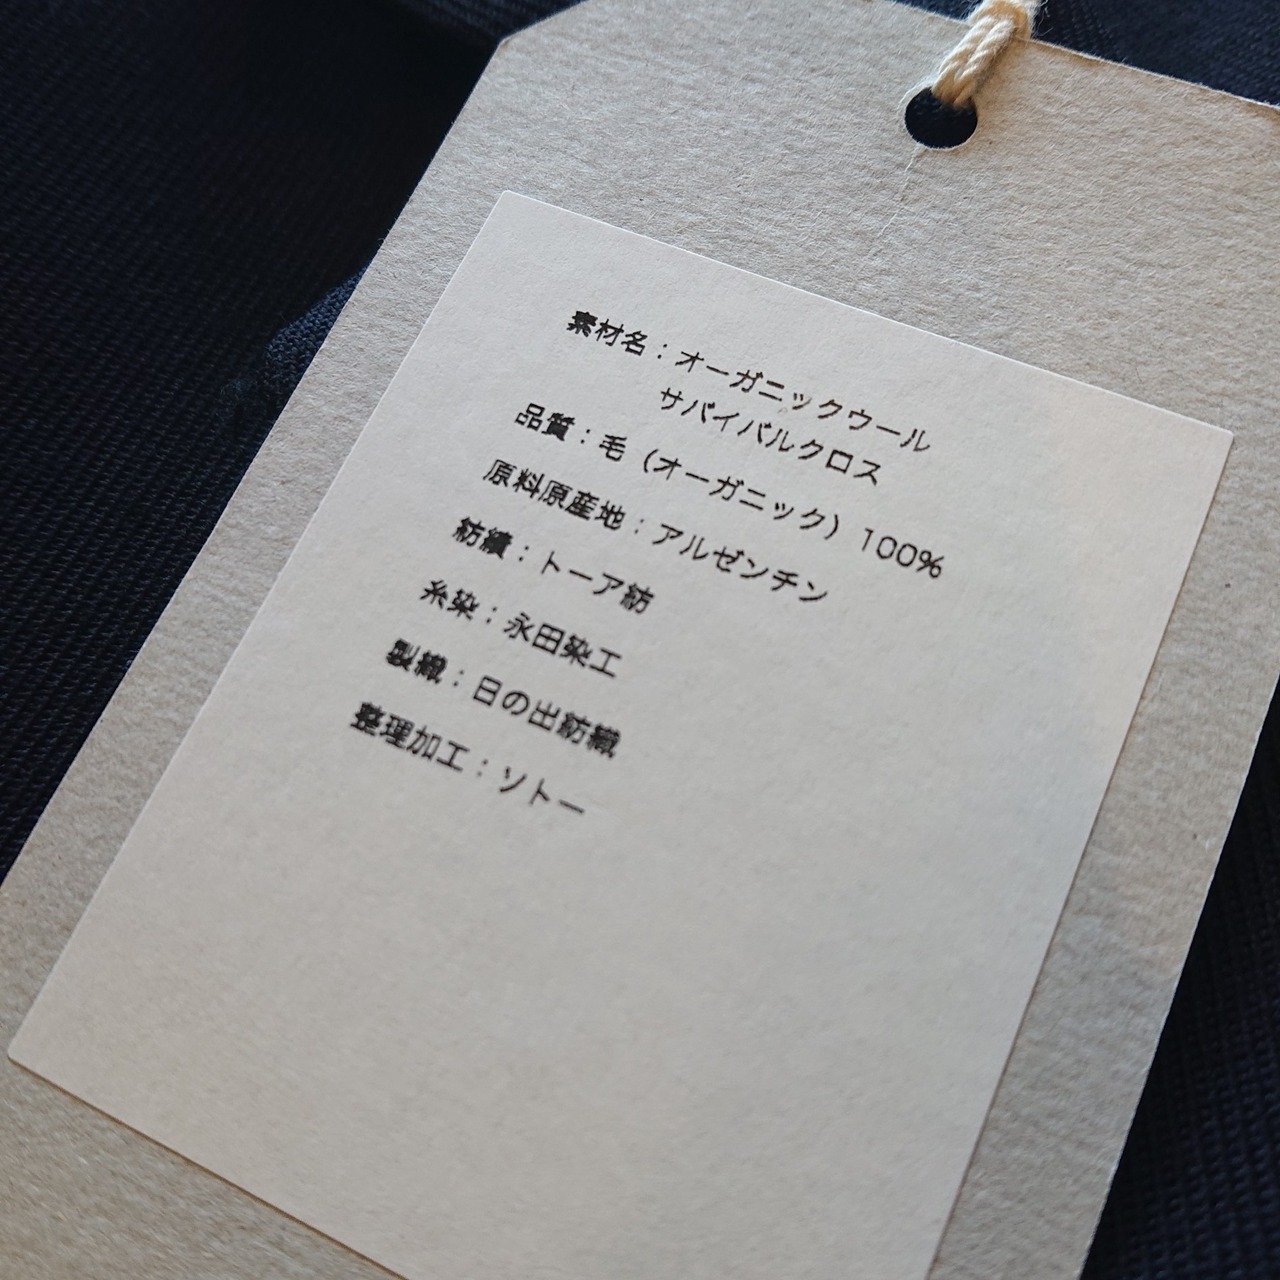 素材名：オーガニックウール
サバイバルクロス
品質：毛（オーガニック）100%
原料原産地：アルゼンチン
紡績：トーア紡
糸染：永田染工
製織：日の出紡織
整理加工：ソトー